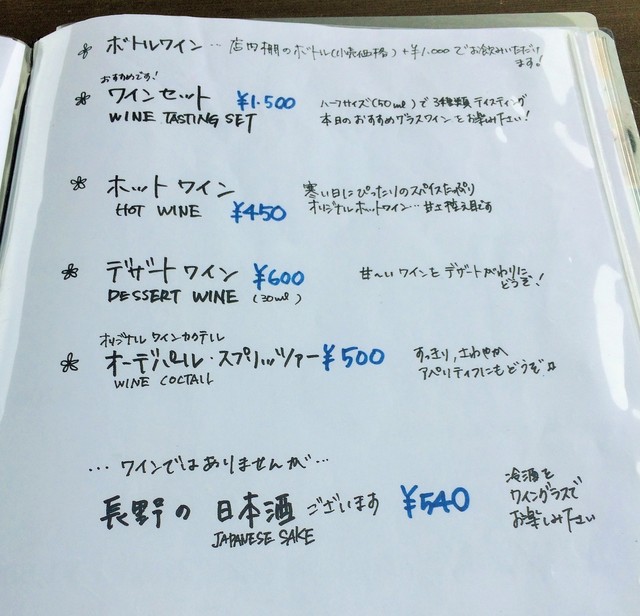 ボトルワイン… 店内棚のボトル(小売価格)+¥1,000でお飲みいただけ
ます!
おすすめです!
ワインセット ¥1.500
WINE TASTING SET
ハーフサイズ(50ml)で 3種類テイスティング
本日のおすすめグラスワインをお楽み下さい!
ホットワイン
HOT WINE ¥450
寒い日にぴったりのスパイスたっぷり
オリジナルホットワイン…甘さ控え目です
デザートワイン ¥600
DESSERT WINE (30ml)
甘〜いワインをデザートがわりに
どうぞ!
オリジナル ワインカクテル
オーデパール・スプリッツァー ¥500
WINE COCTAIL
すっきり,さわやか
アペリティフにもどうぞ♫
…ワインではありませんが…
長野の 日本酒 ございます ¥540
JAPANESE SAKE
冷酒を
ワイングラスで
お楽み下さい